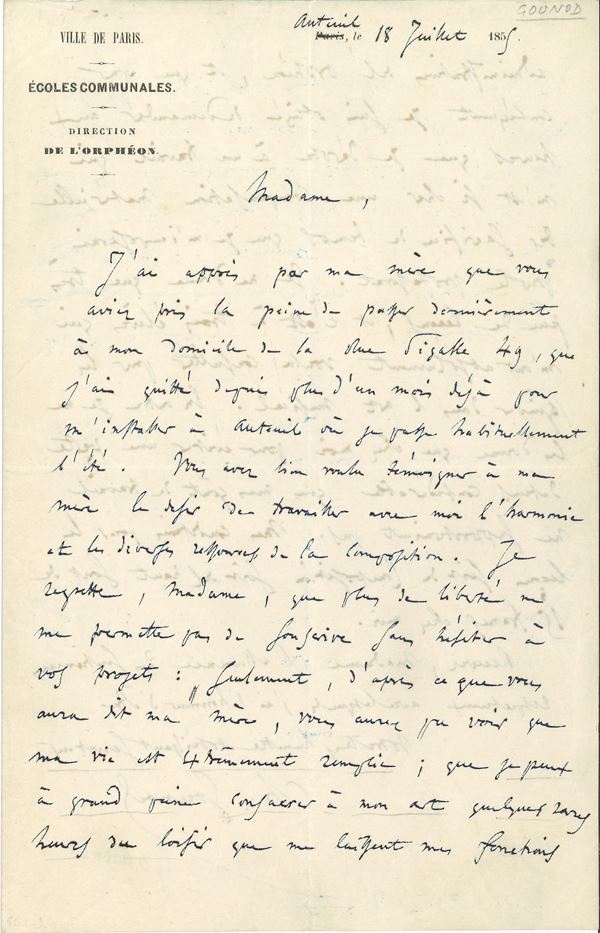 GOUNOD
VILLE DE PARIS.
ÉCOLES COMMUNALES.
DIRECTION
DE L'ORPHÉON.
Auteuil
Paris, le 18 Juillet 1855.
Madame,
J'ai appris par ma mère que vous
aviez pris la peine de passer dernièrement
à mon domicile de la Rue Pigalle 49, que
j'ai quitté depuis plus d'un mois déjà pour
m'installer à Auteuil où je passe habituellement
l'été. Vous avez bien voulu témoigner à ma
mère le désir de travailler avec moi l'harmonie
et les diverses ressources de la Composition. Je
regrette, Madame, que plus de liberté ne
me permette pas de souscrire sans hésiter à
vos projets : Seulement, d'après ce que vous
aura dit ma mère, vous aurez pu voir que
ma vie est extrêmement remplie ; que je peux
à grand peine consacrer à mon art quelques rares
heures de loisir que me laissent mes fonctions